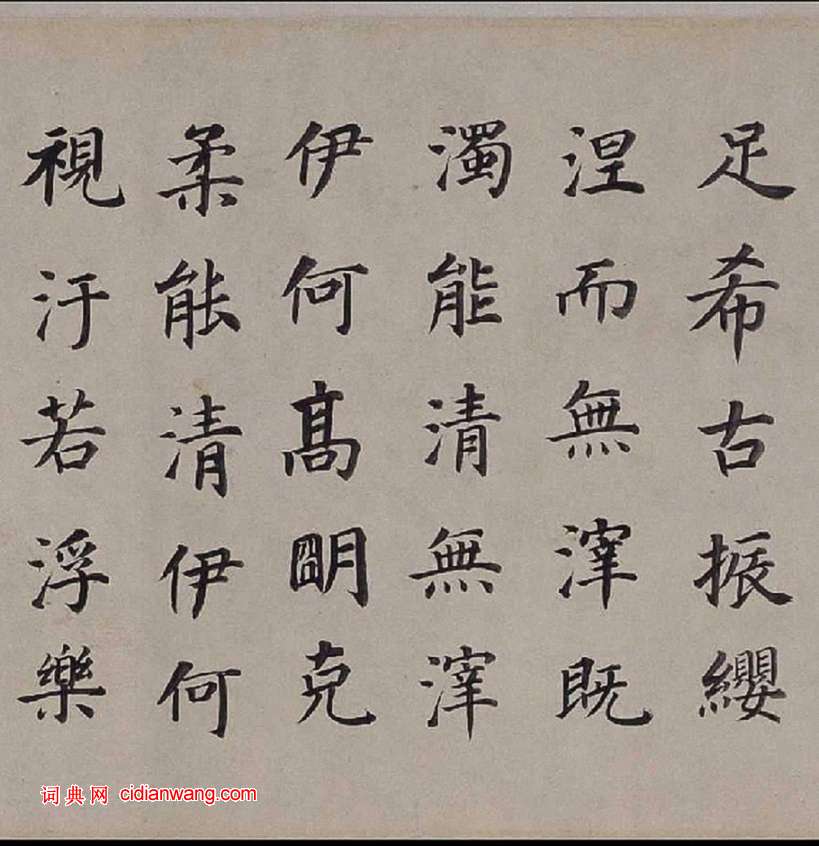 足希古振纓
涅而無滓既
濁能清無滓
伊何高明克
柔能清伊何
視汙若浮樂
词典网 cidianwang.com